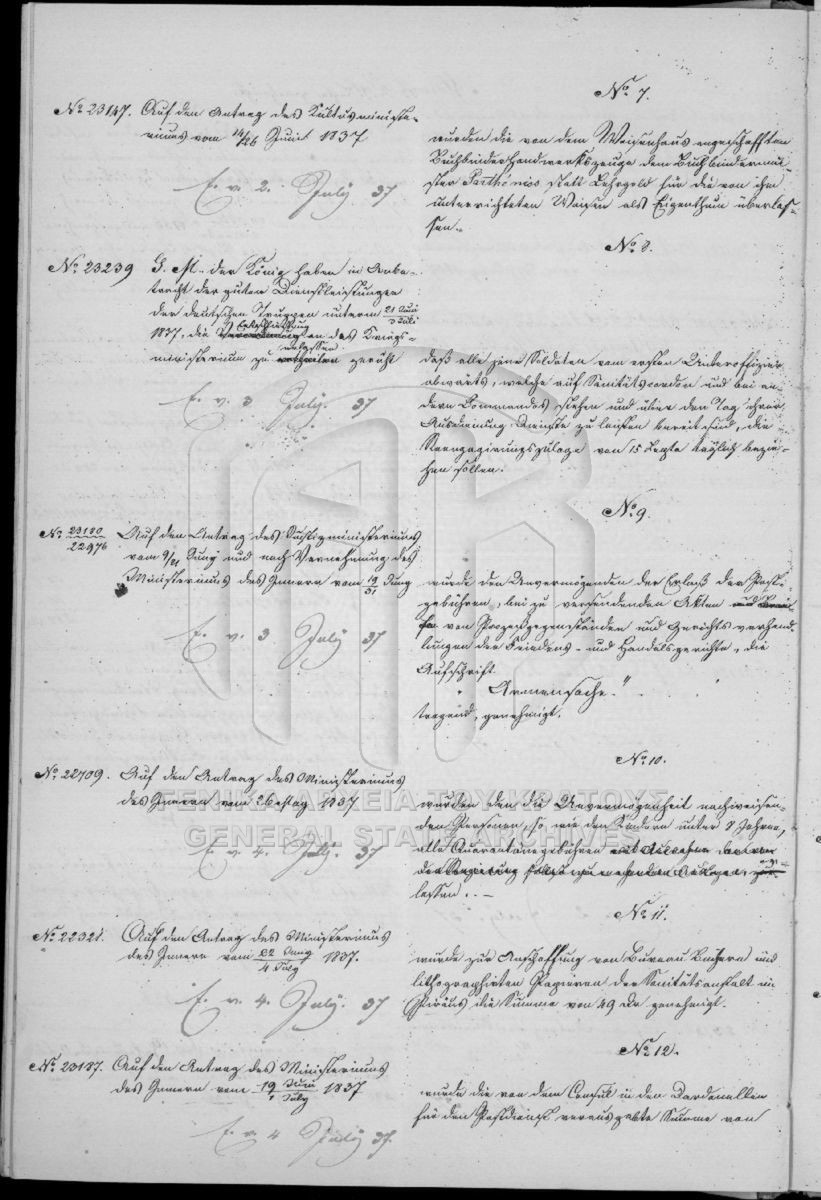 No 7.
No 23147. Auf den Antrag des Kultusministe-
riums vom 14/26 Junii 1837
E. v. 2. July 37
wurden die von dem Waisenhaus angeschafften
Buchbinderhandwerkszeuge dem Buchbindermei-
ster statt Lehrgeld für die von ihm
unterrichteten Waisen als Eigenthum überlas-
sen.
No 8.
No 23239 S. M. der König haben in Anbe-
tracht der guten Dienstleistungen
der deutschen Truppen unterm 21 Juni / 3 Juli
1837, die Entschließung des Kriegs-
ministerium zu erlassen geruht
E. v. 3 July. 37
daß alle jene Soldaten vom ersten Unteroffizier
abwärts, welche auf Sanitätscordon und bei an-
dern Commandos stehen und über den Tag ihrer
Ausdienung Dienste zu leisten bereit sind, die
Reengagirungszulage von 15 Lepta täglich bezie-
hen sollen.
No 9.
No 23180 / 22976 Auf den Antrag des Justizministeriums
vom 9/21 Juny und nach Vernehmung des
Ministeriums des Innern vom 19/31 Juny
E. v. 3 July 37
wurde den Unvermögenden der Erlaß der Post-
gebühren, bei zu versendenden Akten
von Prozeßgegenständen und Gerichts verhand-
lungen der Friedens- und Handelsgerichte, die
Aufschrift
"Armensache"
tragend, genehmigt.
No 10.
No 22709. Auf den Antrag des Ministeriums
des Innern vom 26 May 1837
E. v. 4. July. 37
wurden den die Unvermögenheit nachweisen-
den Personen, so wie den Kindern unter 8 Jahren,
alle Quarantänegebühren
der Regierung
lassen. . —
No 11.
No 22321. Auf den Antrag des Ministeriums
des Innern vom 22 Juny / 4 July 1837.
E. v. 4. July. 37
wurde zur Anschaffung von Bureau Büchern und
lithographirten Papieren der Sanitätsanstalt im
Piräus die Summe von 49 Dr. genehmigt.
No 12.
No 23187. Auf den Antrag des Ministeriums
des Innern vom 19 Juni / 1 July 1837
E. v. 4 July 37.
wurde die von dem Consul in den Dardanellen
für den Postdienst verausgabte Summe von
ΓΕΝΙΚΑ ΑΡΧΕΙΑ ΤΟΥ ΚΡΑΤΟΥΣ
GENERAL STATE ARCHIVES